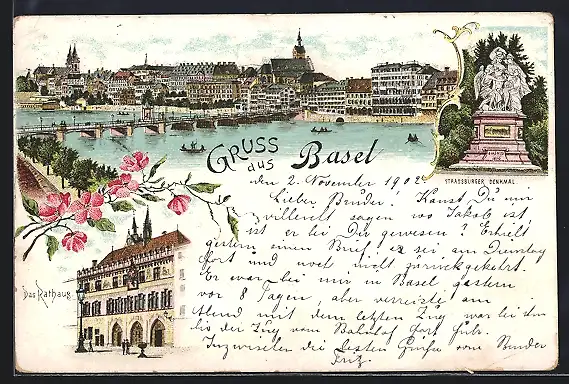 GRUSS
aus
Basel
STRASSBURGER DENKMAL
Das Rathaus.
den 2. November 1902
Lieber Bruder! Kanst Du mir
villeicht sagen wo Jakob ist
ist er bei Dir gewesen? Erhielt
gestern einen Brief er sei am Dienstag
fort und noch nicht zürückgekehrt.
Er war bei mir in Basel, gestern
vor 8 Tagen, aber verreiste am
Abend mit dem letzten Zug war bei ihm
bis der Zug vom Bahnhof fort fuhr.
Inzwischen die besten Grüsse vom Bruder
Fritz.